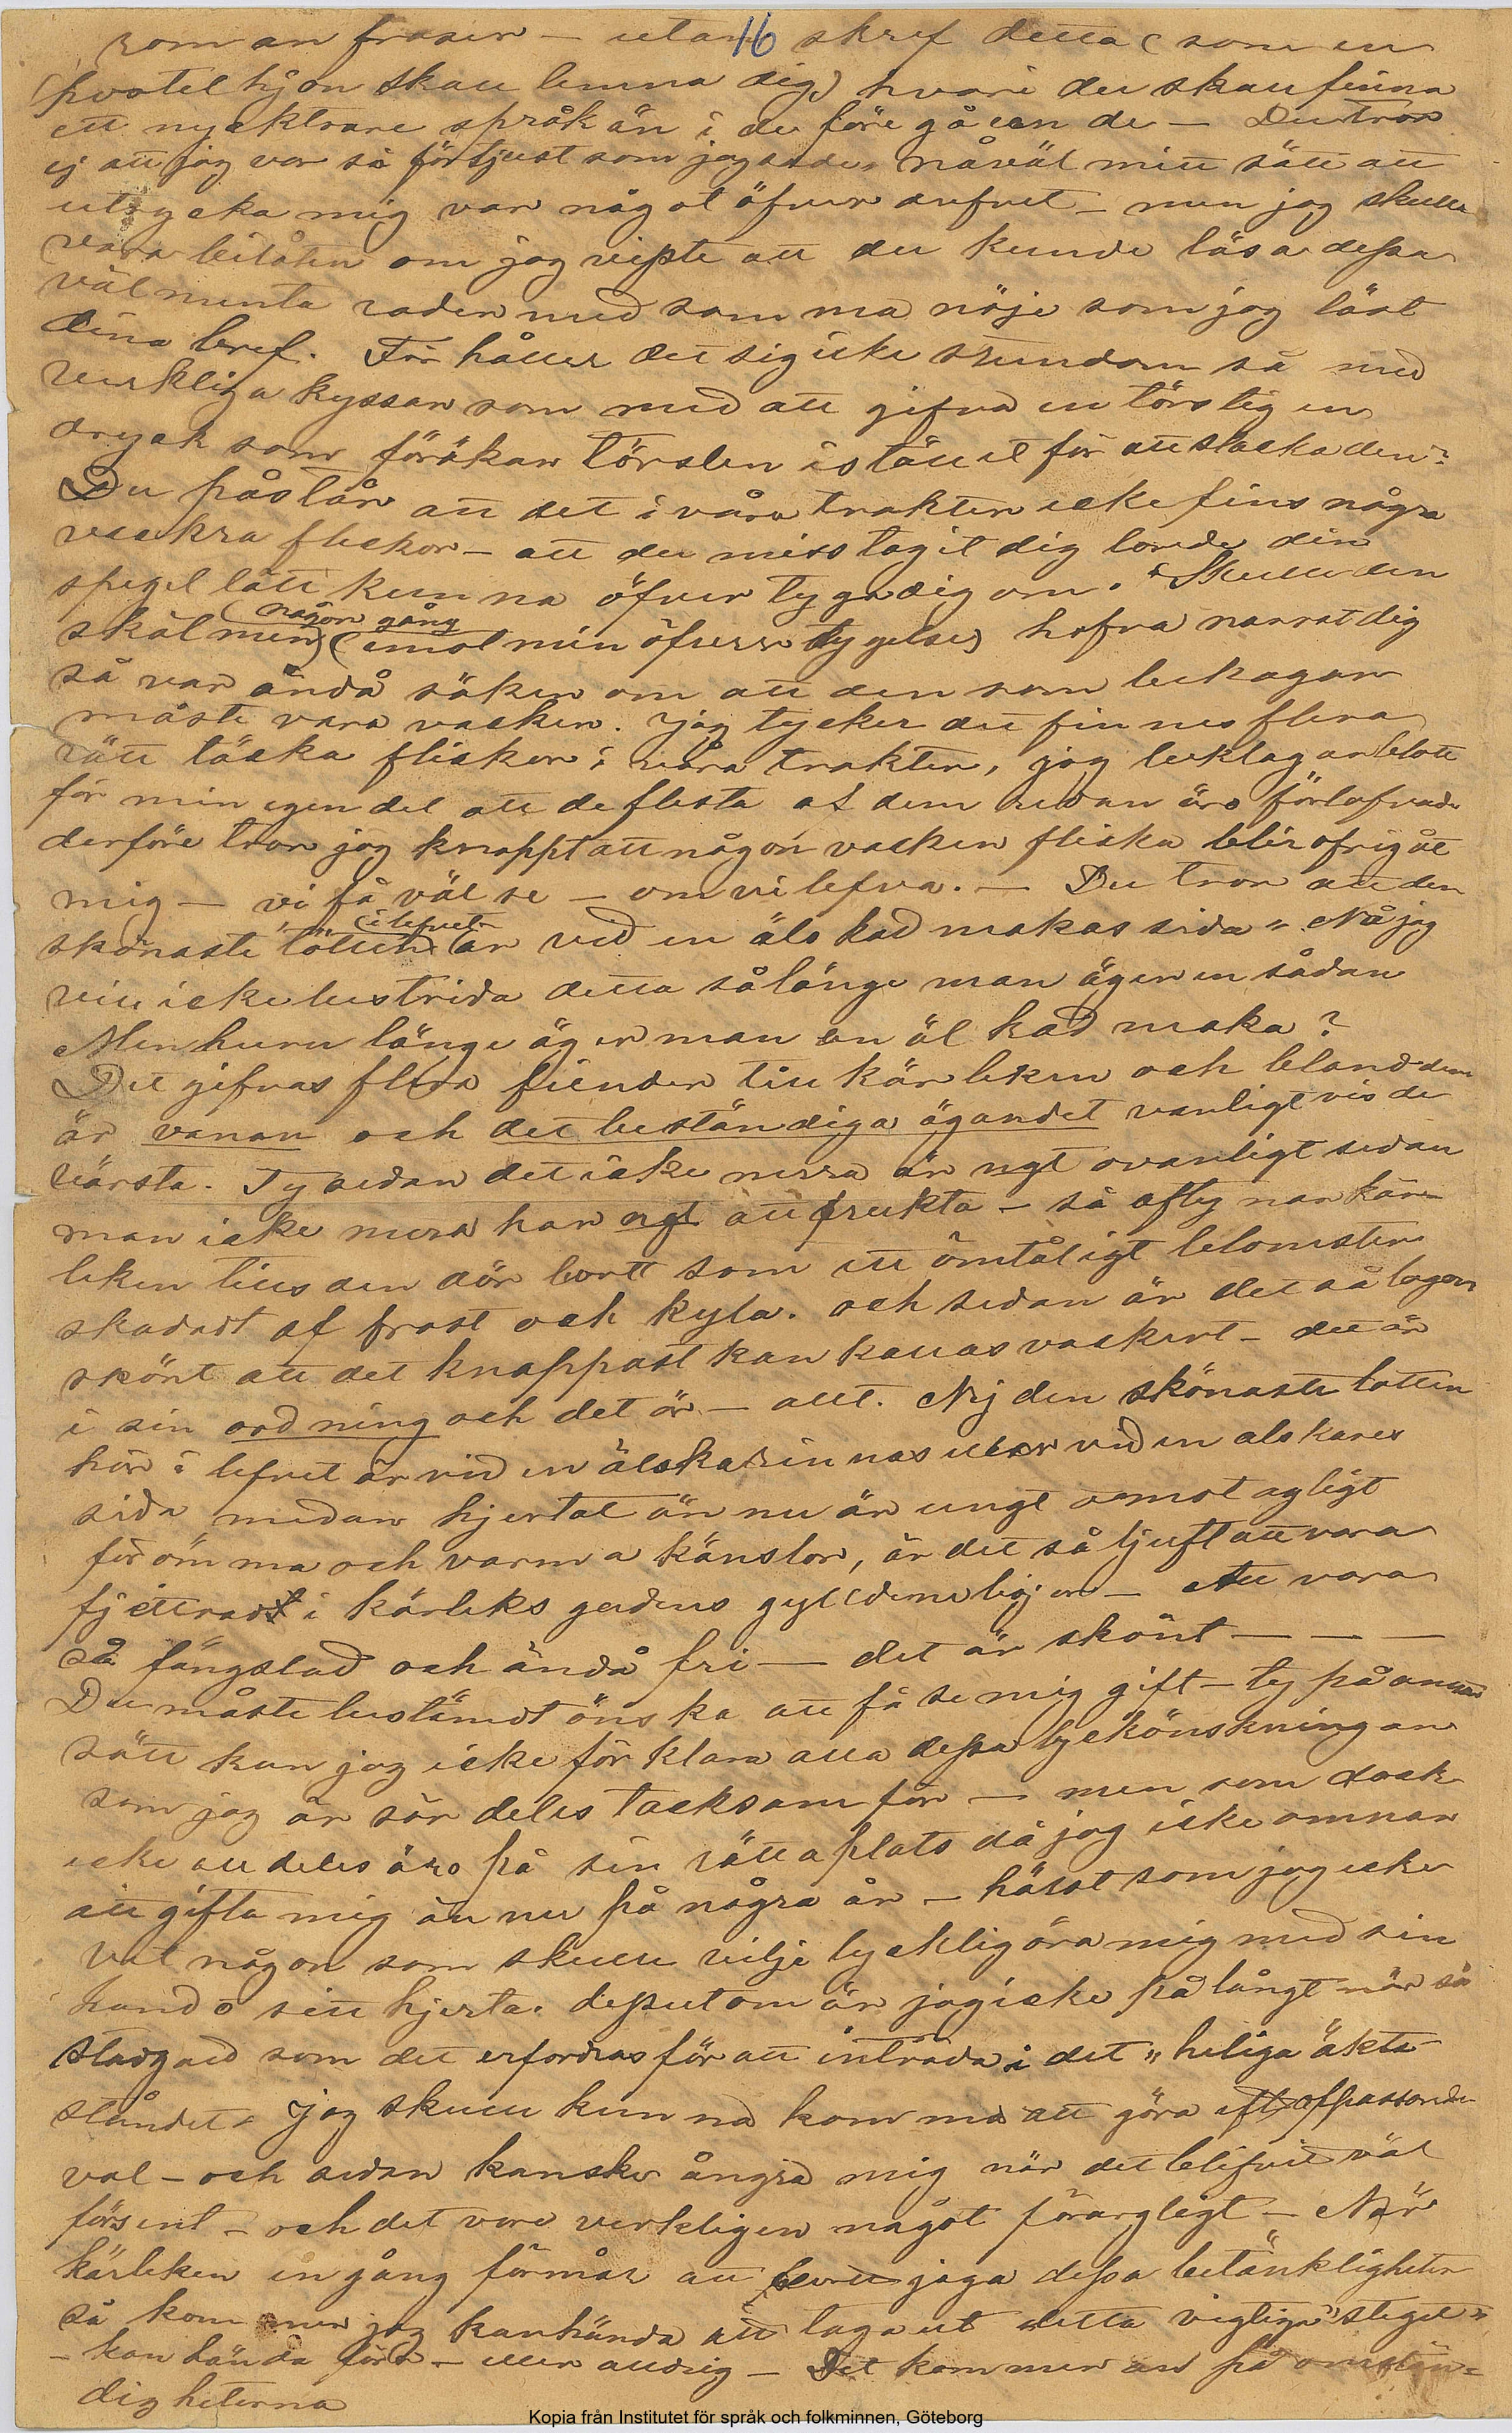 roman fraser — utan 16 skref detta (som en
(postelhjon skall lemna dig) hvari du skall finna
ett nycktrare språk än i de föregåen de — Du tror
ej att jag var så förtjust som jag sade" nåväl mitt sätt att
utrycka mig var något öfver drifvet — men jag skulle
vara belåten om jag viste att du kunde läsa dessa
välmenta rader med samma nöje som jag läst
dina bref. För håller det sig icke stundom så med
verkliga kyssar som med att gifva en törstig en
dryck som förökar törsten istället för att släcka den?
Du påstår att det i våra trakter icke fins några
vackra flickor — att du misstagit dig borde din
spegel lätt kunna öfvertyga dig om. Skulle den
någon gång
skälmen) (emot min öfvertygelse) hafva narrat dig
så var ändå säker om att den som beklagar
måste vara vacker. Jag tycker det finnes flera
rätt täcka flickor i våra trakter, jag beklagar blott
för min egen del att de flesta af dem redan äro förlofvade
derföre tror jag knappt att någon vacker flicka blir öfrig åt
mig — vi få väl se — om vi lefva. — Du tror att den
i lefvet
skönaste lotten är vid en älskad makas sida" Nå jag
vill icke bestrida detta sålänge man äger en sådan
Men huru länge äger man en älskad maka?
Det gifvas flera fiender till kärleken och bland dem
är vanan och det beständiga ägandet vanligtvis de
värsta. Ty sedan det icke mera är ngt ovanligt sedan
man icke mera har ngt att frukta — så aftynar kär
leken tills den dör bort som ett ömtåligt blomster
skadadt af frost och kyla. och sedan är det så lagom
skönt att det knappast kan kallas vackert — det är
i sin ordning och det är — allt. Nej den skönaste lotten
här i lefvet är vid en älskarinnas eller vid en älskares
sida medan hjertat ännu är ungt o mottagligt
för ömma och varma känslor, är det så ljuft att vara
fjettrad i kärleks gudens gyldene böjor — Att vara
så fängslad och ändå fri — det är skönt — — —
Du måste bestämdt önska att få se mig gift — ty på annat
sätt kan jag icke förklara alla dessa lyckönskningar
som jag är sär deles tacksam för — men som dock
icke alldeles äro på sin rätta plats då jag icke ämnar
att gifta mig ännu på några år — hälst som jag icke
vet någon som skulle vilja lyckliggöra mig med sin
hand o sitt hjerta. dessutom är jag icke på långt när så
stadgad som det erfordras för att inträda i det "heliga äkta
ståndet" jag skulle kunna komma att göra ett opassande
val — och sedan kanske ångra mig när det blifvit väl
försent — och det vore verkligen något förargligt — När
kärleken en gång förmår att bort jaga dessa betänkligheter
så kommer jag kanhända att taga ut detta vigtiga "steget"
— kanhända förr — eller aldrig — Det kommer an på omstän=
digheterna
Kopia från Institutet för språk och folkminnen, Göteborg